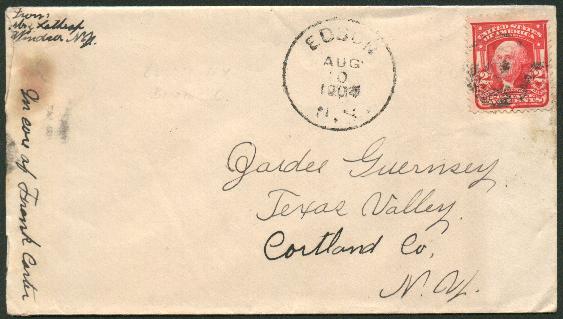 From:
Mrs Lathrop
Windsor, N.Y.
In care of Frank Carter
EDSON
AUG
10
N.Y.
UNITED STATES
OF AMERICA
2 2
CENTS
Jardee Guernsey
Texas Valley.
Cortland Co,
N. Y.